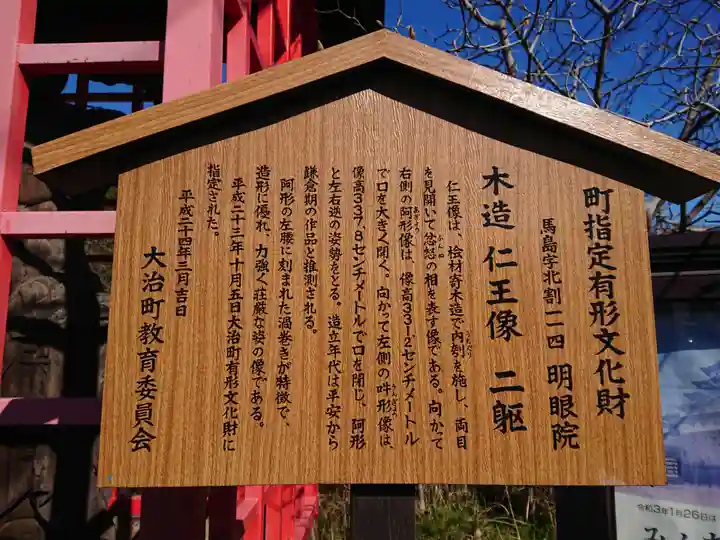 町指定有形文化財
馬島字北割一二四 明眼院
木造 仁王像 二躯
仁王像は、桧材寄木造で内刳を施し、両目
を見開いて忿怒の相を表す像である。向かって
右側の阿形像は、像高331.2センチメートル
で口を大きく開く。向かって左側の吽形像は、
像高337.8センチメートルで口を閉じ、阿形
と左右逆の姿勢をとる。造立年代は平安から
鎌倉期の作品と推測される。
阿形の左腰に刻まれた渦巻きが特徴で、
造形に優れ、力強く荘厳な姿の像である。
平成二十三年十月五日大治町有形文化財に
指定された。
平成二十四年三月吉日
大治町教育委員会
令和3年1月26日は